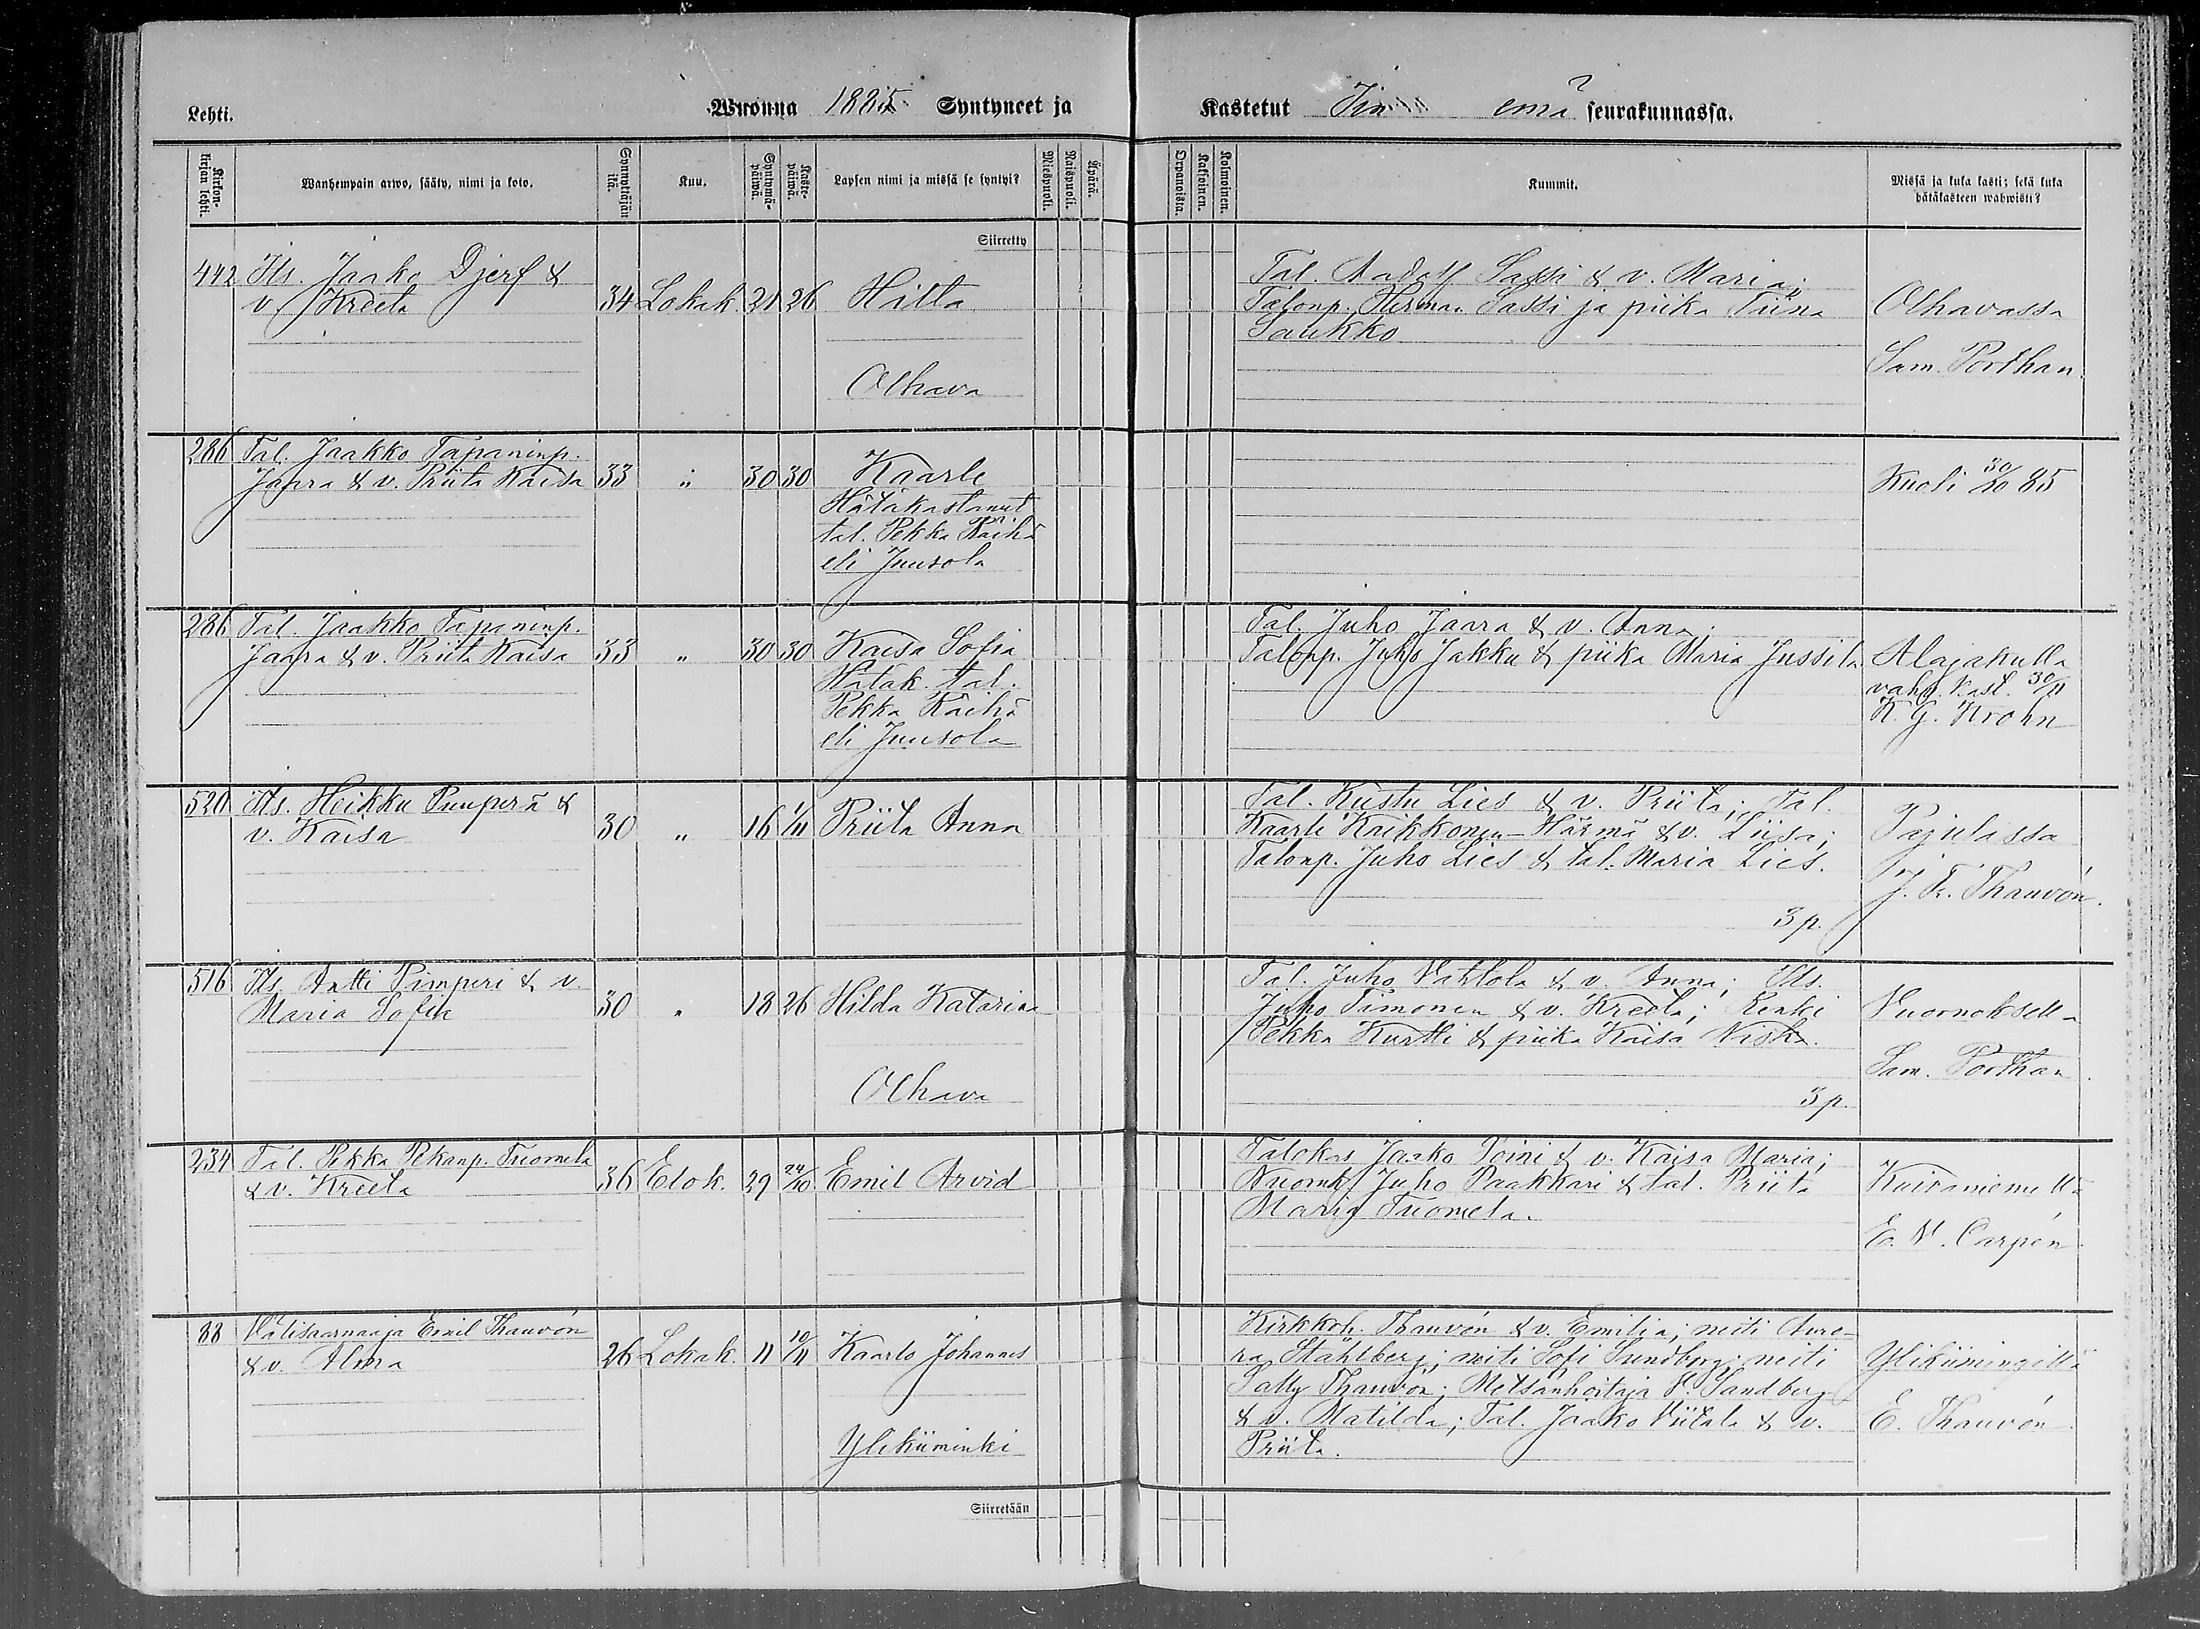 Lehti.
Wuonna 1885 Syntyneet ja
Kastetut Iin emä seurakunnassa.
Kirkon-kirjan lehti.
Wanhempain arwo, sääty, nimi ja koto.
Synnyttäjän ikä.
Kuu.
Syntymä-päiwä.
Kaste-päiwä.
Lapsen nimi ja missä se syntyi?
Miespuoli.
Naispuoli.
Äpärä.
Orpanoista.
Kaksoinen.
Kolmoinen.
Kummit.
Missä ja kuka kasti; sekä kuka hätäkasteen wahwisti?
Siirretty
442 Its. Jaako Djerf &
v. Kreeta 34 Lokak. 21 26 Hilta
Olhava
Tal. Aadolf Sassi & v. Maria;
Talonp. Herman Sassi ja piika Tiina
Saukko
Olhavassa
Sam. Porthan.
286 Tal. Jaakko Tapaninp.
Jaara & v. Priita Kaisa 33 " 30 30 Kaarle
Hätäkastanut
tal. Pekka Räihä
eli Juusola
Kuoli 30/10 85
286 Tal. Jaakko Tapaninp.
Jaara & v. Priita Kaisa 33 " 30 30 Kaisa Sofia
Hätäk. tal.
Pekka Räihä
eli Juusola
Tal. Juho Jaara & v. Anna;
Talonp. Juho Jakku & piika Maria Jussila
Alajakulla
vahv. kast. 30/11
K. G. Krohn
520 Its. Heikku Puuperä &
v. Kaisa 30 " 16 1/11 Priita Anna
Tal. Kustu Lies & v. Priita; Tal.
Kaarle Kaikkonen-Härmä & v. Liisa;
Talonp. Juho Lies & tal. Maria Lies.
3 p.
Pajulassa
J. F. Thauvón.
516 Its. Antti Pimperi & v.
Maria Sofia 30 " 18 26 Hilda Katarina
Olhava
Tal. Juho Vahtola & v. Anna; Its.
Juho Timonen & v. Kreeta; Renki
Pekka Kurtti & piika Kaisa Niska.
3 p.
Vuornoksella
Sam. Porthan.
234 Tal. Pekka Pekanp. Tuomela
& v. Kreeta 36 Elok. 29 24/10 Emil Arvid
Talokas Jaako Soini & v. Kaisa Maria;
Nuornk. Juho Paakkari & tal. Priita
Maria Tuomela.
Kuivaniemellä
E. V. Carpén.
88 Välisaarnaaja Emil Thauvón
& v. Alma 26 Lokak. 11 10/11 Kaarlo Johannes
Ylikiiminki
Kirkkoh. Thauvón & v. Emilia; neiti Auro-
ra Ståhlberg; neiti Sofi Sundberg; neiti
Sally Thauvón; Metsänhoitaja V. Sandberg
& v. Matilda; Tal. Jaako Viitala & v.
Priita.
Ylikiimingillä
E. Thauvón.
Siirretään